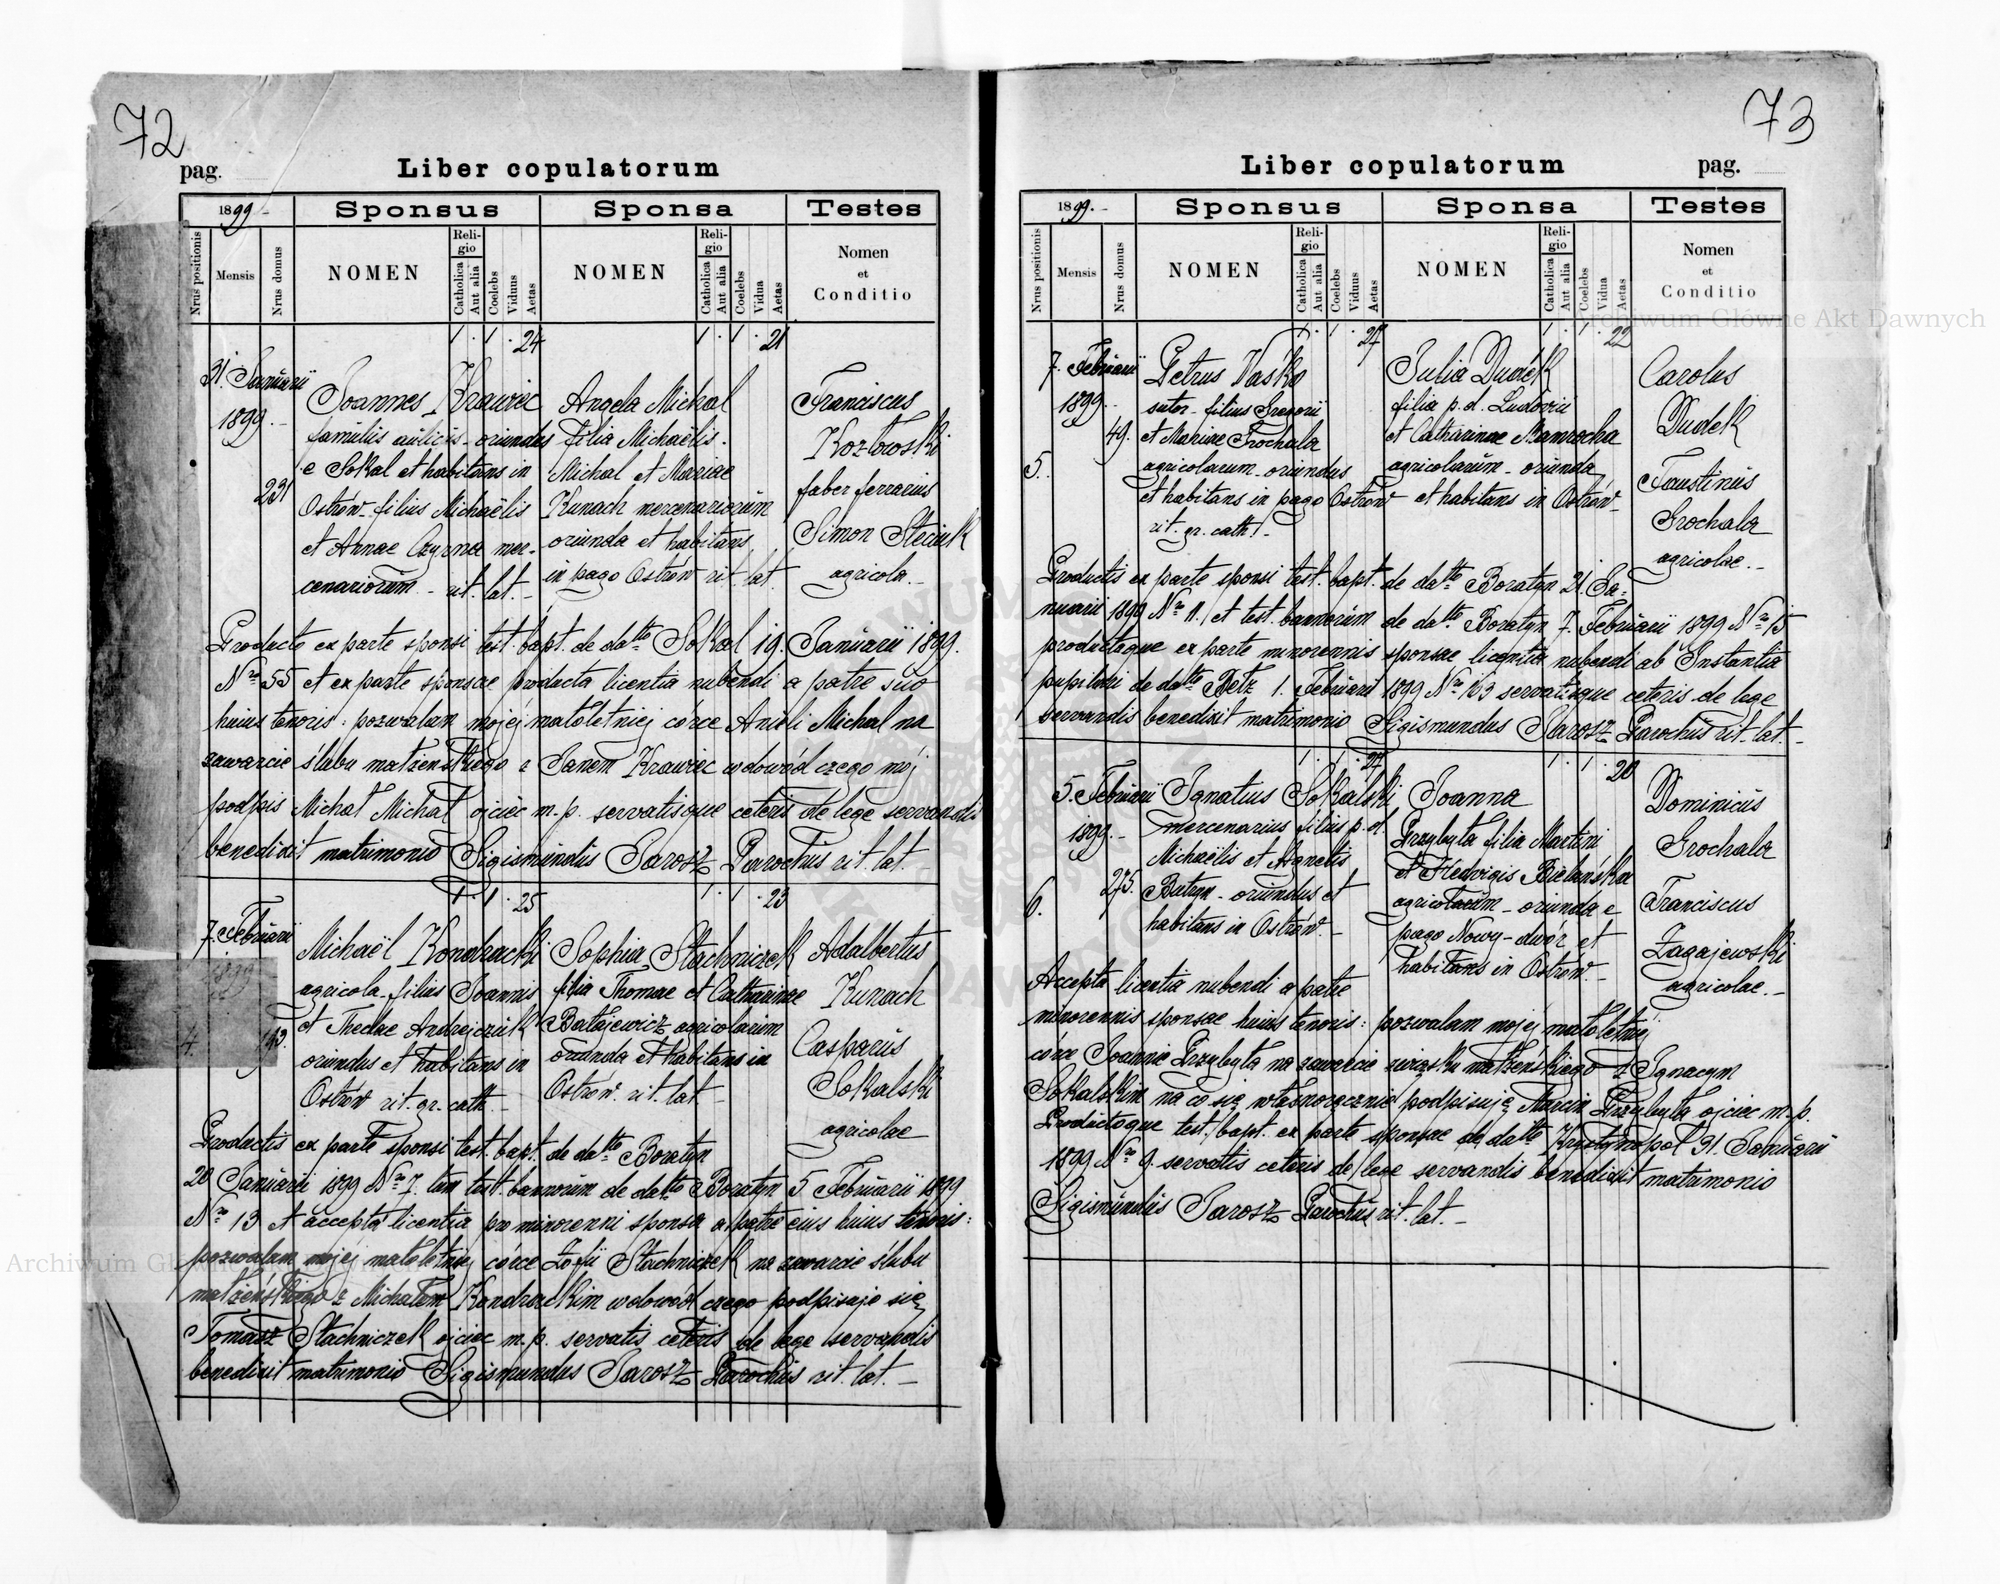 72
pag.
Liber copulatorum
1899 Sponsus Sponsa Testes
Nrus positionis Mensis Nrus domus NOMEN Religio Catholica Aut alia Coelebs Viduus Aetas NOMEN Religio Catholica Aut alia Coelebs Vidua Aetas Nomen et Conditio
1 · 1 · 24 1 · 1 · 21
31. Januarii
1899.
231
Joannes Krawiec
famulus aulicus - oriundus
e Sokal et habitans in
Ostrów filius Michaëlis
et Annae Czyrna mer-
cenariorum - rit. lat. -
Angela Michal
filia Michaëlis
Michal et Mariae
Kunach mercenariorum
oriunda et habitans
in pago Ostrów rit. lat.
Franciscus
Kozłowski
faber ferrarius
Simon Steciuk
agricola. -
Producto ex parte sponsi test. bapt. de datto Sokal 19. Januarii 1899.
Nro 55 et ex parte sponsae producta licentia nubendi a patre suo
huius tenoris: pozwalam mojej małoletniej córce Anieli Michal na
zawarcie ślubu małżeńskiego z Janem Krawiec w dowód czego mój
podpis Michał Michal ojciec m. p. servatisque ceteris de lege servandis
benedixit matrimonio Sigismundus Jarosz Parochus rit. lat. -
1 · 1 · 25 1 · 1 · 23
7. Februarii
1899
4.
193.
Michaël Kondracki
agricola filius Joannis
et Theclae Andrejczuk
oriundus et habitans in
Ostrów rit. gr. cath. -
Sophia Stachniczek
filia Thomae et Catharinae
Batajewicz agricolarum
oriunda et habitans in
Ostrów rit. lat. -
Adalbertus
Kunach
Casparus
Sokalski
agricolae
Productis ex parte sponsi test. bapt. de datto Boratyn
20 Januarii 1899 Nro 7. tum test. bannorum de datto Boratyn 5 Februarii 1899
Nro 13 et accepta licentia pro minorenni sponsa a patre eius huius tenoris:
pozwalam mojej małoletniej córce Zofii Stachniczek na zawarcie ślubu
małżeńskiego z Michałem Kondrackim w dowód czego podpisuje się
Tomasz Stachniczek ojciec m. p. servatis ceteris de lege servandis
benedixit matrimonio Sigismundus Jarosz Parochus rit. lat. -
73
Liber copulatorum
pag.
1899. Sponsus Sponsa Testes
Nrus positionis Mensis Nrus domus NOMEN Religio Catholica Aut alia Coelebs Viduus Aetas NOMEN Religio Catholica Aut alia Coelebs Vidua Aetas Nomen et Conditio
1 · 1 · 27 1 · 1 · 22
7. Februarii
1899.
49.
5.
Petrus Vaśko
sutor - filius Gregorii
et Mariae Grochala
agricolarum - oriundus
et habitans in pago Ostrów
rit. gr. cath. -
Julia Dudek
filia p. d. Ludovici
et Catharinae
agricolarum - oriunda
et habitans in Ostrów -
Carolus
Dudek
Faustinus
Grochala
agricolae. -
Productis ex parte sponsi test. bapt. de datto Boratyn 21. Ja-
nuarii 1899 Nro 11. et test. bannorum de datto Boratyn 7. Februarii 1899 Nro 15
productaque ex parte minorennis sponsae licentia nubendi ab Instantia
pupillari de datto Betz 1. Februarii 1899 Nro 163 servatisque ceteris de lege
servandis benedixit matrimonio Sigismundus Jarosz Parochus rit. lat. -
1 · 1 · 27 1 · 1 · 20
5. Februarii
1899. -
275.
6.
Ignatius Sokalski
mercenarius filius p. d.
Michaëlis et Agnetis
Butryn - oriundus et
habitans in Ostrów. -
Joanna
Przybyta filia Martini
et Hedvigis Bielańska
agricolarum - oriunda e
pago Nowy-dwór et
habitans in Ostrów. -
Dominicus
Grochala
Franciscus
Zagajewski
agricolae. -
Accepta licentia nubendi a patre
minorennis sponsae huius tenoris: pozwalam mojej małoletniej
córce Joannie Przybyta na zawarcie związku małżeńskiego z Ignacym
Sokalskim na co się własnoręcznie podpisuję Marcin Przybyta ojciec m. p.
Productoque test. bapt. ex parte sponsae de datto Krystynopol 31. Januarii
1899 Nro 9. servatis ceteris de lege servandis benedixit matrimonio
Sigismundus Jarosz Parochus rit. lat. -
Archiwum Główne Akt Dawnych